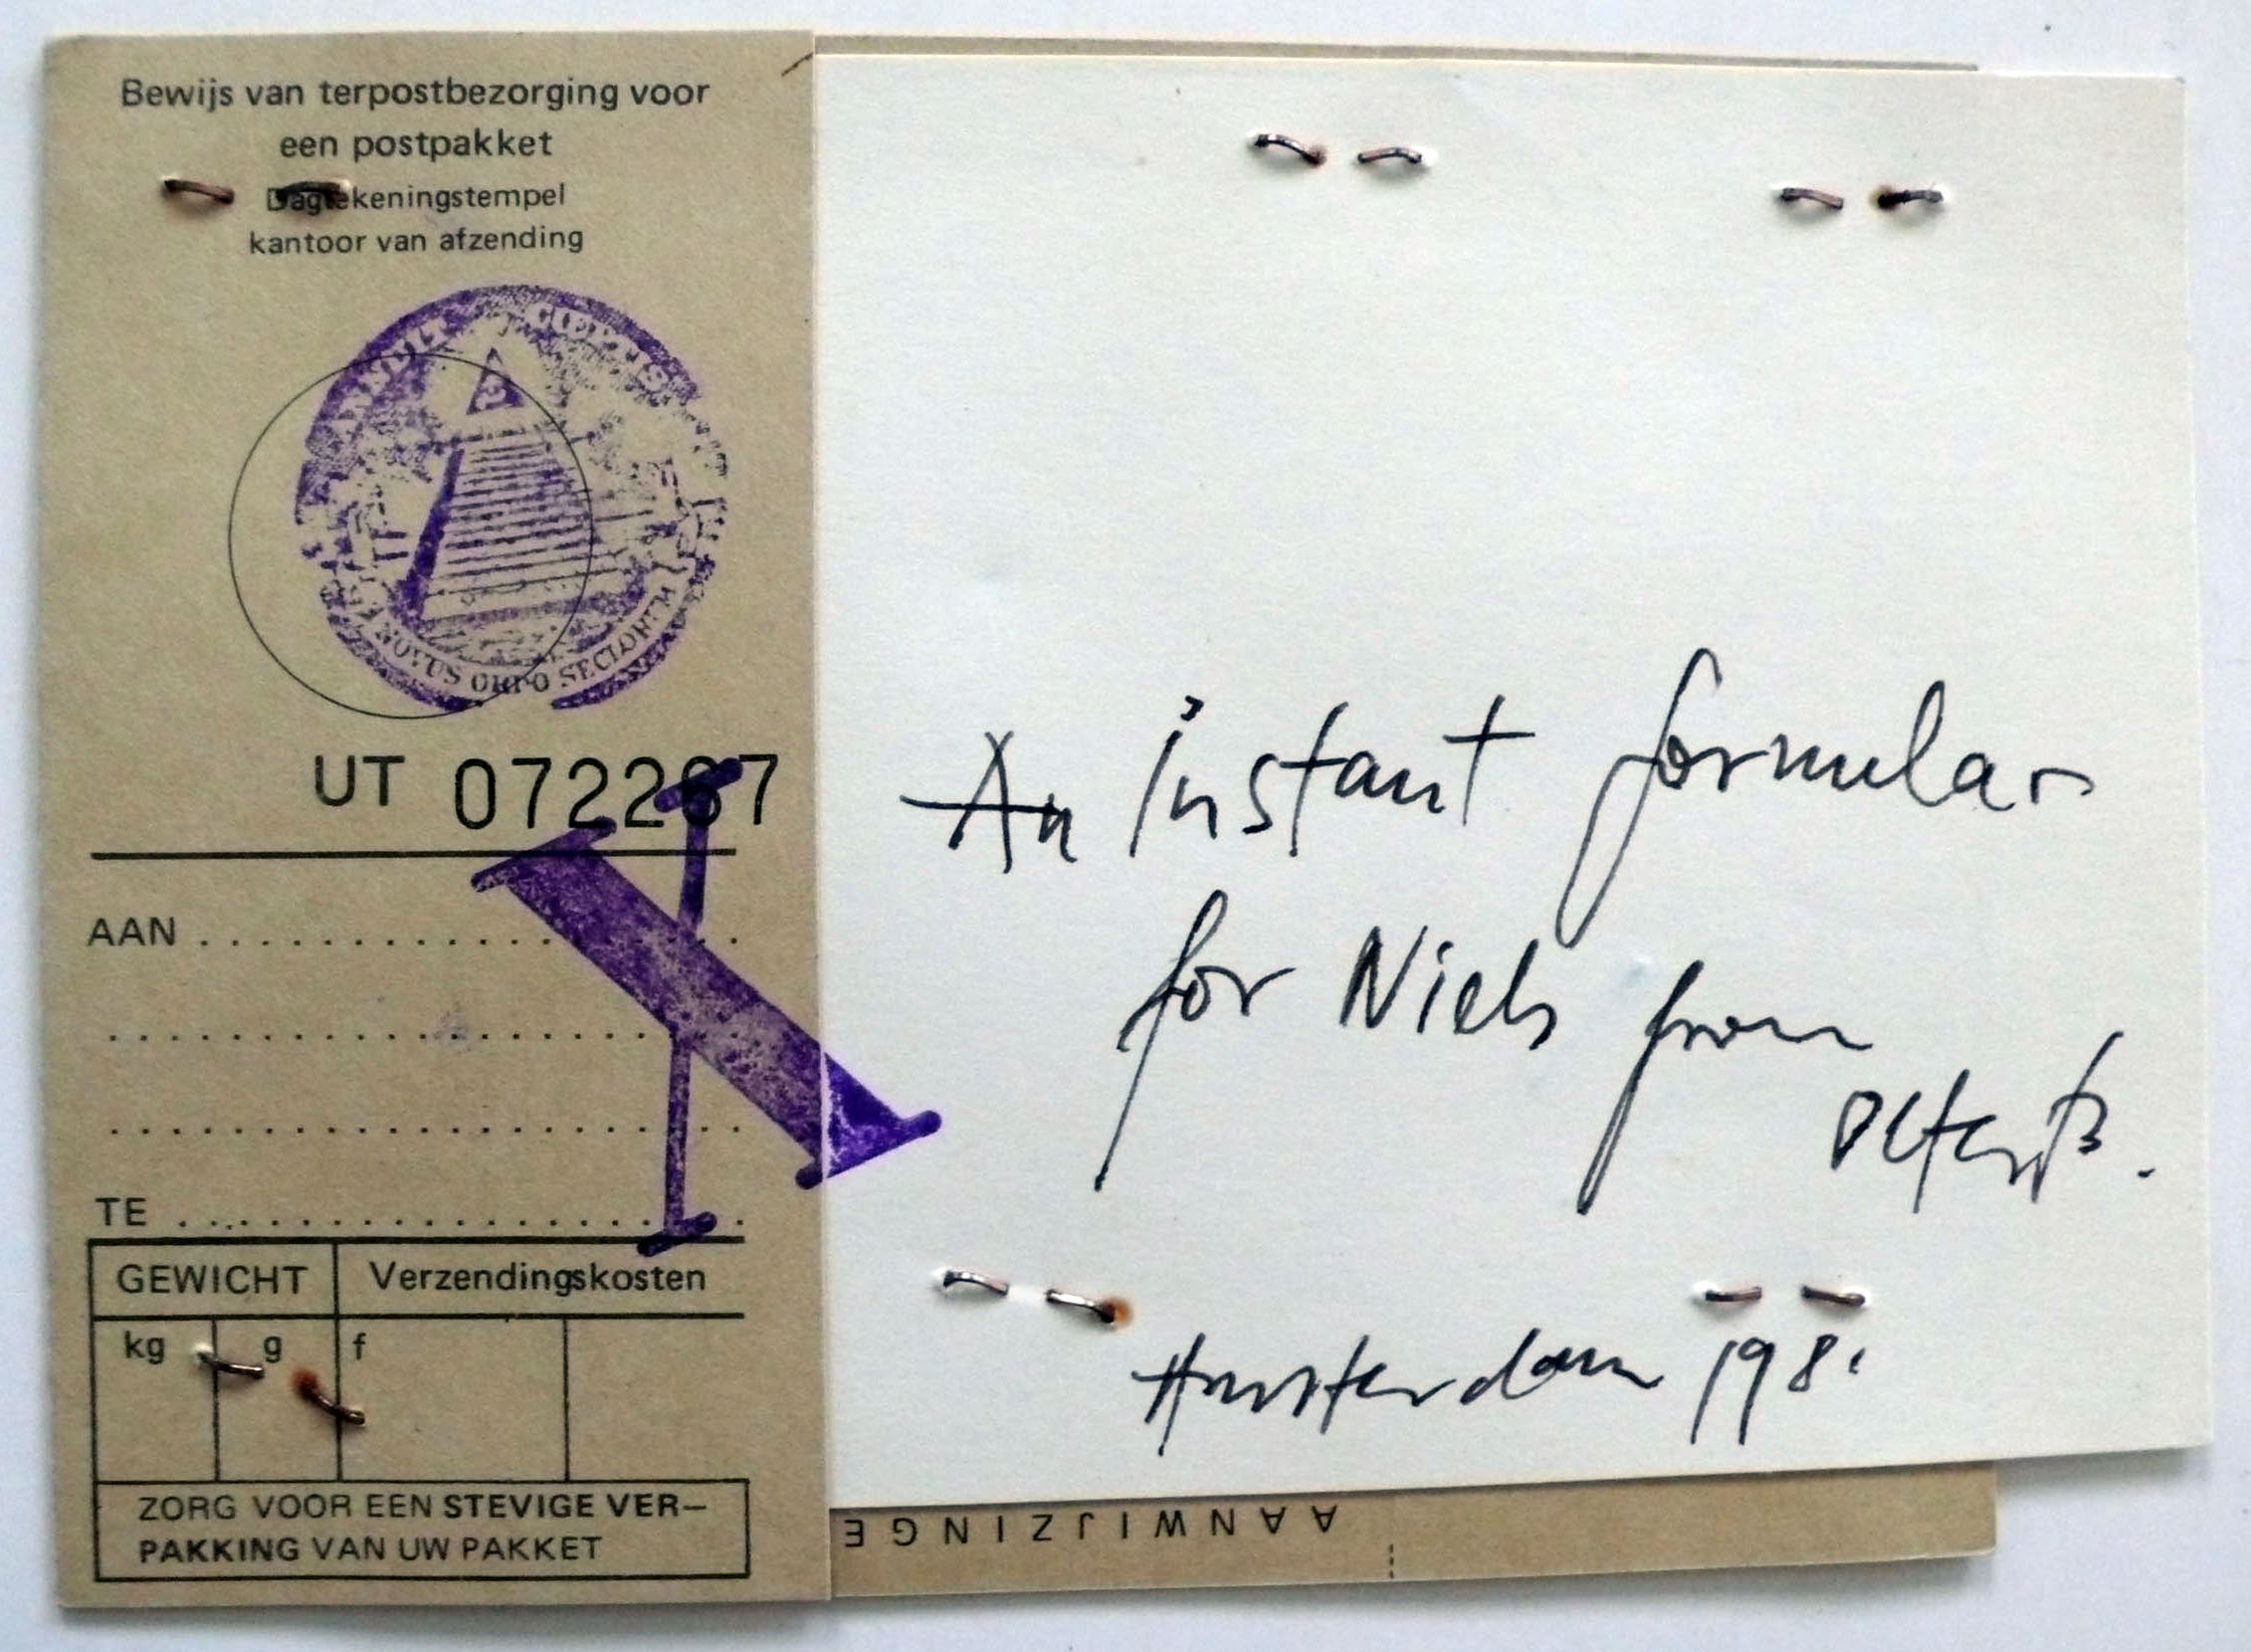 Bewijs van terpostbezorging voor
een postpakket
Dagtekeningstempel
kantoor van afzending
ANNUIT CŒPTIS
NOVUS ORDO SECLORUM
UT 072287
AAN
TE
GEWICHT Verzendingskosten
kg g f
ZORG VOOR EEN STEVIGE VER–
PAKKING VAN UW PAKKET
An instant formular
for Niels from
Amsterdam 198
AANWIJZINGE